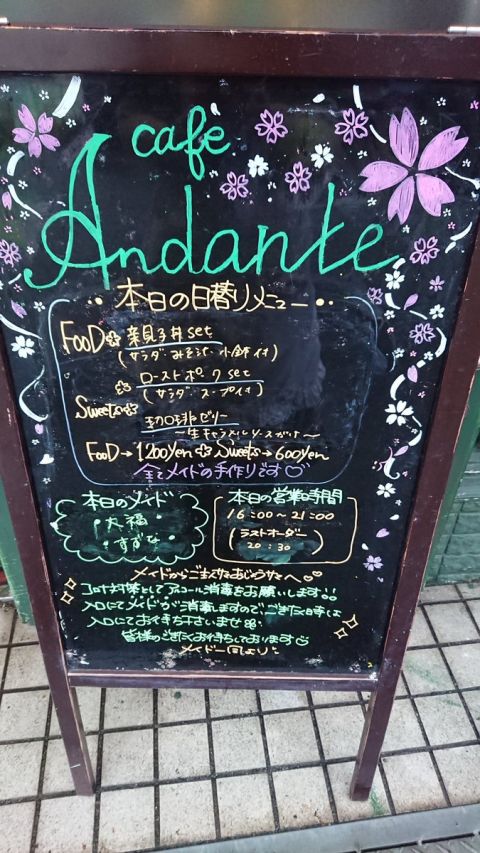 cafe
Andante
本日の日替りメニュー
FooD 親子丼set
(サラダ・みそ汁・小鉢付)
ローストポークset
(サラダ・スープ付)
Sweets 珈琲ゼリー
〜生キャラメルソースがけ〜
FooD→1200yen Sweets→600yen
全てメイドの手作りです♡
本日のメイド
・大福
・すずな
本日の営業時間
16:00〜21:00
(ラストオーダー
20:30)
メイドからごしゅじんさまおじょうさまへ
コロナ対策としてアルコール消毒をお願いします!!
入口にてメイドが消毒しますのでご帰宅時は
入口にてお待ち下さいませ
皆様のごきたくお待ちしております
メイド一同より